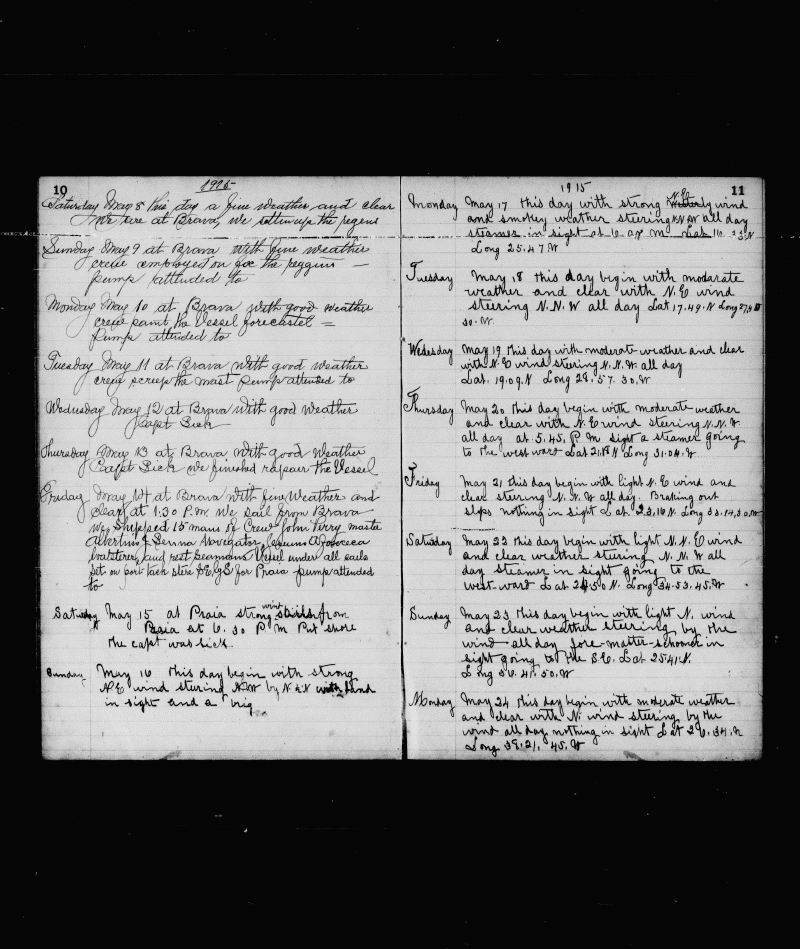 10
1915
Saturday May 8 this day a fine weather and clear
We are at Brava, we up the regens
Sunday May 9 at Brava with fine weather
crew employed on the reggins
pump attended to
Monday May 10 at Brava with good weather
crew paint the Vessel forecastel =
pump attended to
Tuesday May 11 at Brava with good weather
crew screep the mast pump attended to
Wednusday May 12 at Brava with good weather
Capt Sick
Thursday May 13 at Brava with good Weather
Capt Sick we finished rapair the Vessel
Friday May 14 at Brava with fine Weather and
Clear at 1:30 P.M. we sail from Brava
We Shipped 15 mans of Crew John Perry master
Senna Navegator,
and rest seamans Vessel under all sails
set on port tack stere for Praia pump attended
to
Saturday May 15 at Praia strong wind from
Praia at 6.30 P M Put shore
the capt was sick.
Sunday May 16 this day begin with strong
N.E wind stering N.W by N & N with land
in sight and a brig
1915
11
Monday May 17 this day with strong N.E wind
and smokey weather steering N.N.W all day
steamer in sight at 6. a P M. Lat 16.
Long 25.47.W
Tuesday May 18 this day begin with modarate
weather and clear with N.E wind
steering N.N.W all day Lat 17.49.N Long 27,
30.W.
Wedesday May 19 this day with moderate weather and clear
with N.E wind steering N.N.W. all day
Lat. 19.09.N Long 28.57.30.W
Thursday May 20 this day begin with moderate weather
and clear with N.E wind steering N.N.W
all day at 5.45. P M sight a steamer going
to the west ward Lat N Long 31.04.W.
Friday May 21 this day begin with light N.E wind and
clear steering N.N.W all day. Braking out
slops nothing in sight Lat. 23,10N Long 33.14,30,W
Satuday May 22 this day begin with light N.N.E wind
and clear weather steering N.N.W all
day steamer in sight going to the
west ward Lat 24.50 N. Long 34.53.45.W
Sunday May 23 this day begin with light N. wind
and clear weather steering by the
wind all day fore matter schooner in
sight going to the S.E. Lat 25.41.N.
Long 36.41.50.W
Monday May 24 this day begin with moderate weather
and clear with N. wind steering by the
wind all day nothing in sight Lat 26.34.N
Long 38.21.45.W